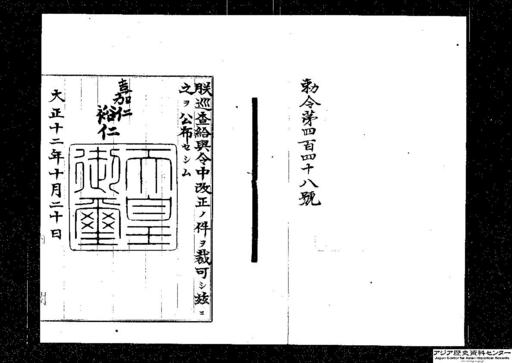 勅令第四百四十八號
朕巡査給與令中改正ノ件ヲ裁可シ玆ニ
之ヲ公布セシム
嘉仁
裕仁
天皇
御璽
大正十二年十月二十日
アジア歴史資料センター
Japan Center for Asian Historical Records